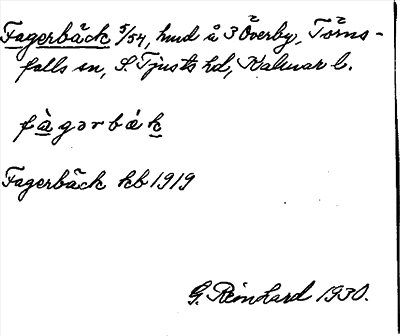 Fagerbäck 5/54, hmd å 3 Överby, Törns-
falls sn, S. Tjusts hd, Kalmar l.
fàgərbák
Fagerbäck kb 1919
G. Reinhard 1930.